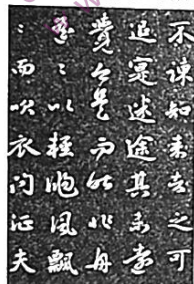 不諫知来者之可
追寔迷途其未遠
覺今是而昨非舟
遥〻以輕颺風飄
〻而吹衣問征夫